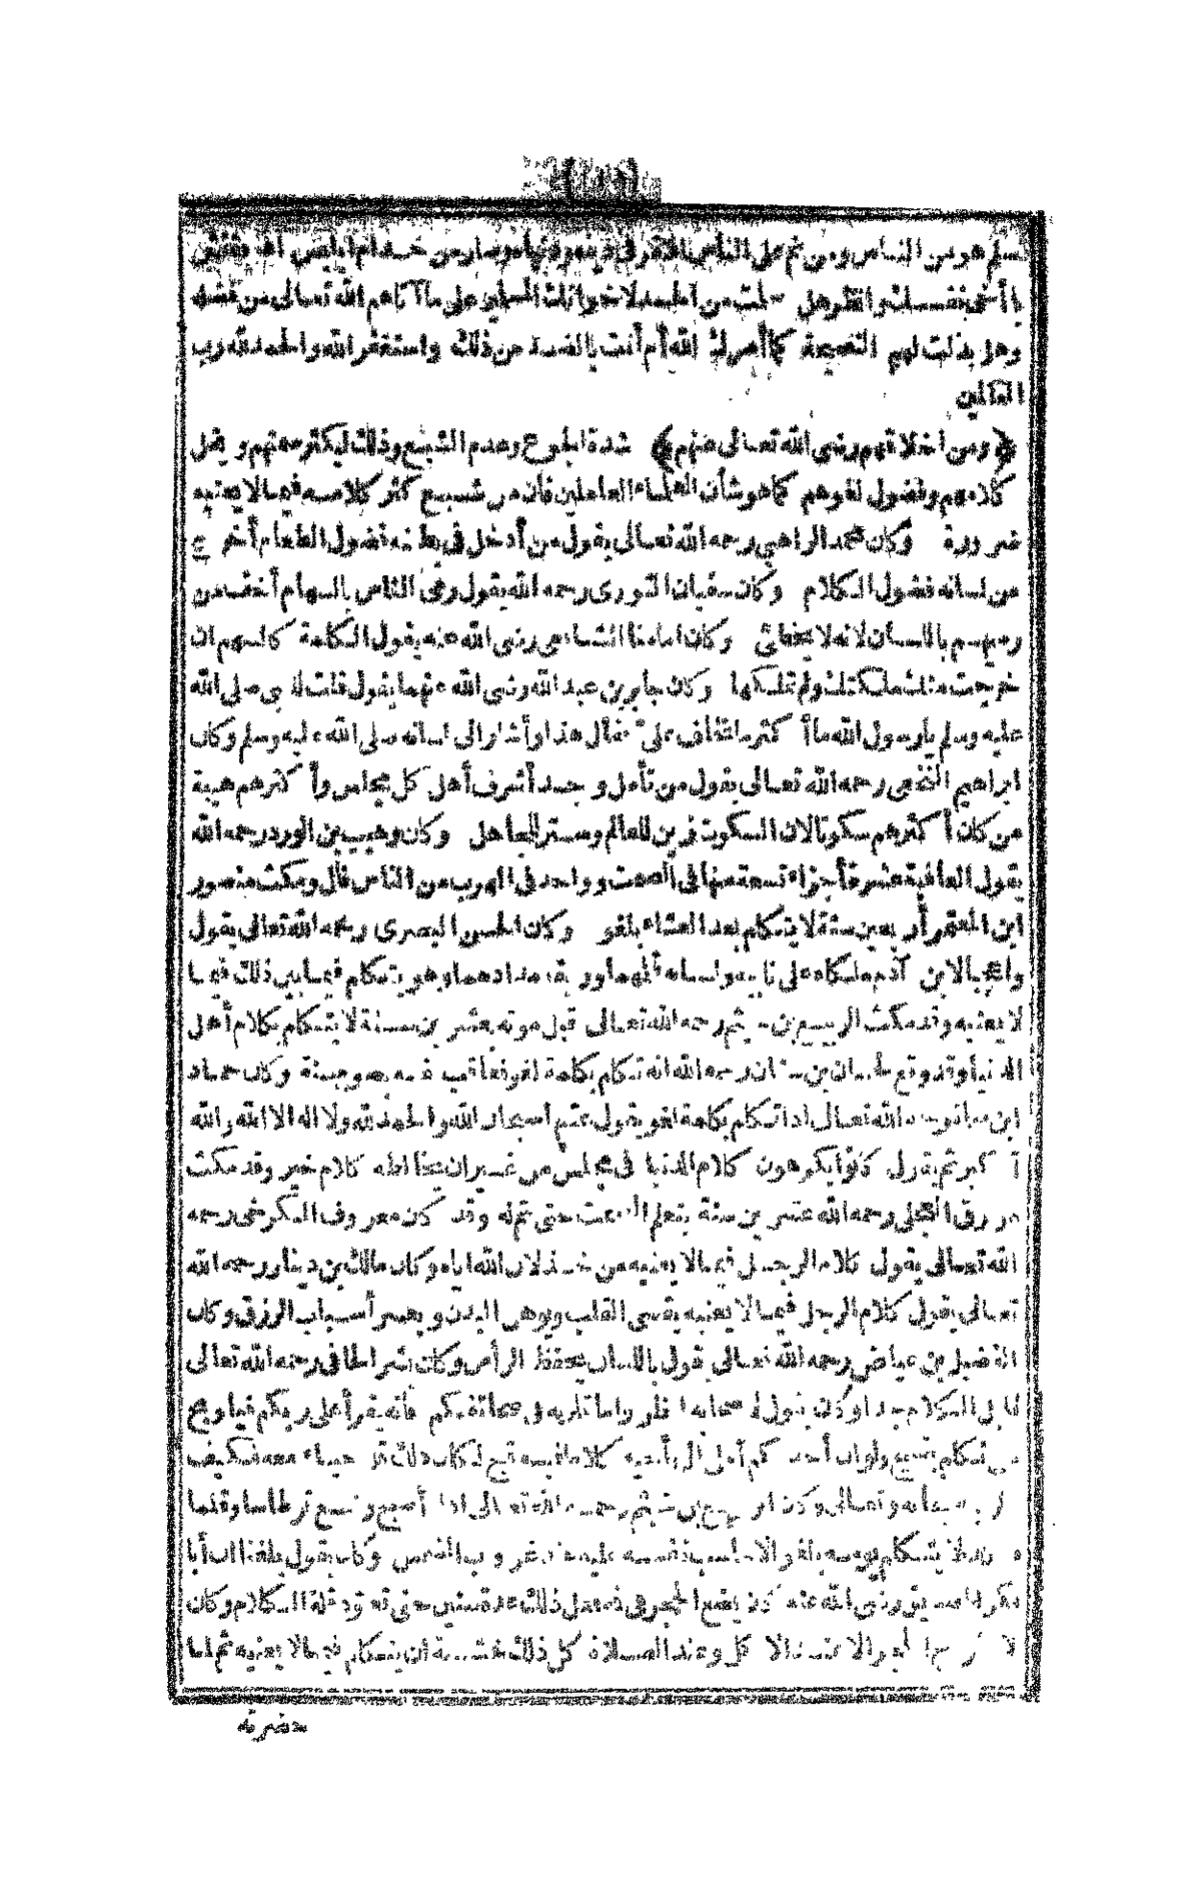 لمسلم هو من الناس ومن نم على الناس الافرق في دينه ودنياه وصار من خدام ابليس اه ففتش
يا أخى نفسك وانظر هل سلمت من الحسد لاخوانك المسلمين على ما آتاهم الله تعالى من فضله
وهل بذلت لهم النصيحة كما أمرك الله أم أنت بالضد من ذلك واستغفر الله والحمد لله رب
العالمين
﴿ومن أخلاقهم رضى الله تعالى عنهم﴾ شدة الجوع وعدم الشبع وذلك ليكثر صمتهم ويقل
كلامهم وفضول لغوهم كما هو شأن العلماء العاملين فان من شبع كثر كلامه فيما لا يعنيه
ضرورة وكان محمد الراهبى رحمه الله تعالى يقول من أدخل في بطنه فضول الطعام أخرج
من لسانه فضول الكلام وكان سفيان الثورى رحمه الله يقول رمى الناس بالسهام أخف من
رميهم باللسان لانه لا يخطئ وكان امامنا الشافعى رضى الله عنه يقول الكلمة كالسهم ان
خرجت منك ملكتك ولم تملكها وكان جابر بن عبد الله رضى الله عنهما يقول قلت للنبى صلى الله
عليه وسلم يا رسول الله ما أكثر ما تخاف على فقال هذا وأشار الى لسانه صلى الله عليه وسلم وكان
ابراهيم النخعى رحمه الله تعالى يقول من تأمل وجد أشرف أهل كل مجلس وأكثرهم هيبة
من كان أكثرهم سكوتا لان السكوت زين للعالم وستر للجاهل وكان وهيب بن الورد رحمه الله
يقول العافية عشرة أجزاء تسعة منها فى الصمت وواحد فى الهرب من الناس قال ومكث منصور
ابن المعتمر أربعين سنة لا يتكلم بعد العشاء بلغو وكان الحسن البصرى رحمه الله تعالى يقول
واعجبا لابن آدم ملكاه على نابيه ولسانه قلمهما وريقه مدادهما وهو يتكلم فيما بين ذلك فيما
لا يعنيه وقد مكث الربيع بن خيثم رحمه الله تعالى قبل موته بعشرين سنة لا يتكلم بكلام أهل
الدنيا وقد وقع لحسان بن سنان رحمه الله انه تكلم بكلمة لغو فعاقب نفسه بصوم سنة وكان حماد
ابن رحمه الله تعالى اذا تكلم بكلمة لغو يقول عقبها سبحان الله والحمد لله ولا اله الا الله والله
أكبر ثم يقول كانوا يكرهون كلام الدنيا فى مجلس من غير ان يخالطه كلام خير وقد مكث
مورق العجلى رحمه الله عشرين سنة يتعلم الصمت حتى تم له وقد كان معروف الكرخى رحمه
الله تعالى يقول كلام الرجل فيما لا يعنيه من خذلان الله اياه وكان مالك بن دينار رحمه الله
تعالى يقول كلام الرجل فيما لا يعنيه يقسى القلب ويوهن البدن ويعسر أسباب الرزق وكان
الفضيل بن عياض رحمه الله تعالى يقول باللسان يحفظ الرأس وكان بشر الحافى رحمه الله تعالى
قليل الكلام جدا وكان يقول لاصحابه انظروا ما تملونه فى صحائفكم فانه يقرأ على ربكم فيا ويح
من تكلم بقبيح ولو ان أحدكم أملى الى أخيه كلاما فيه قبح لكان ذلك قلة حياء معه فكيف
سبحانه وتعالى وكان الربيع بن خيثم رحمه الله تعالى اذا أصبح وضع قرطاسا وقلما
لا يتكلم يومه بلغو الا حاسب نفسه عليه عند غروب الشمس وكان يقول بلغنا ان أبا
بكر الصديق رضى الله عنه كان يضع الحجر فى فيه فعل ذلك عدة سنين حتى تعود قلة الكلام وكان
لا الحجر الا عند الاكل وعند الصلاة كل ذلك خشية ان يتكلم فيما لا يعنيه ثم لما
حضرته